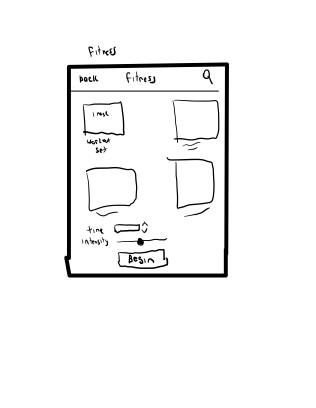 fitness
back fitness
workout
set
time
intensity
Begin